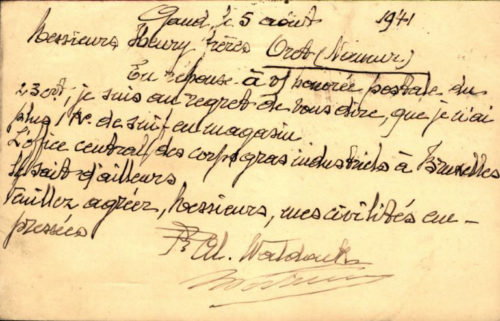 Gand, le 5 août 1941
Messieurs Henry frères Oret (Namur)
En réponse à v/ honorée postale du
23 crt, je suis au regret de vous dire, que je n'ai
plus de suif en magasin.
L'office central des corps gras industriels à Bruxelles
le sait d'ailleurs
Veuillez agréer, Messieurs, mes civilités em-
pressées